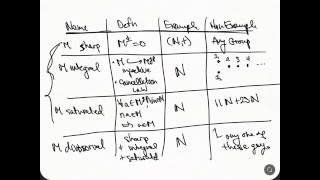 Name Defn Example Non Example
M sharp M^± = 0 (N,+) Any Group
M integral • M → M^gp injective • Cancellation Law N 1 2 3 4
M saturated ∀a∈M^gp, n∈N na∈M ⇒ a∈M N 11N+23N
sharp + integral + saturated N any one of these guys